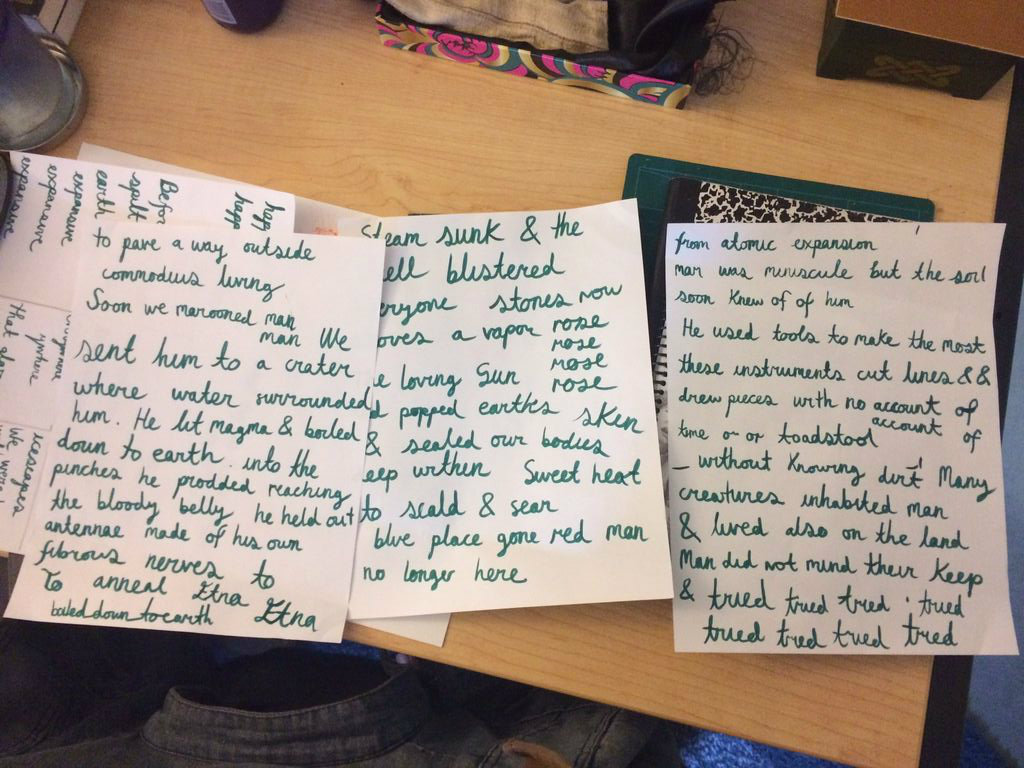 happ
happ
Befor
spilt
earth
expansive
expansive
expansive
that
we
to pave a way outside
commodius living
Soon we marooned man
man We
sent him to a crater
where water surrounded
him. He lit magma & boiled
down to earth. into the
pinches he prodded reaching
the bloody belly he held out
antennae made of his own
fibrous nerves to
To anneal Etna Etna
boiled down to earth
steam sunk & the
ell blistered
eryone stones now
oves a vapor rose
rose
rose
e loving Sun rose
d popped earths sken
& sealed our bodies
eep within Sweet heat
to scald & sear
blue place gone red man
no longer here
from atomic expansion
man was minuscule but the soil
soon knew of of him
He used tools to make the most
these instruments cut lines & &
drew pieces with no account of
account of
time or or toadstool
_ without knowing dirt! Many
creatures inhabited man
& lived also on the land
Man did not mind their keep
& tried tried tried tried
tried tried tried tried